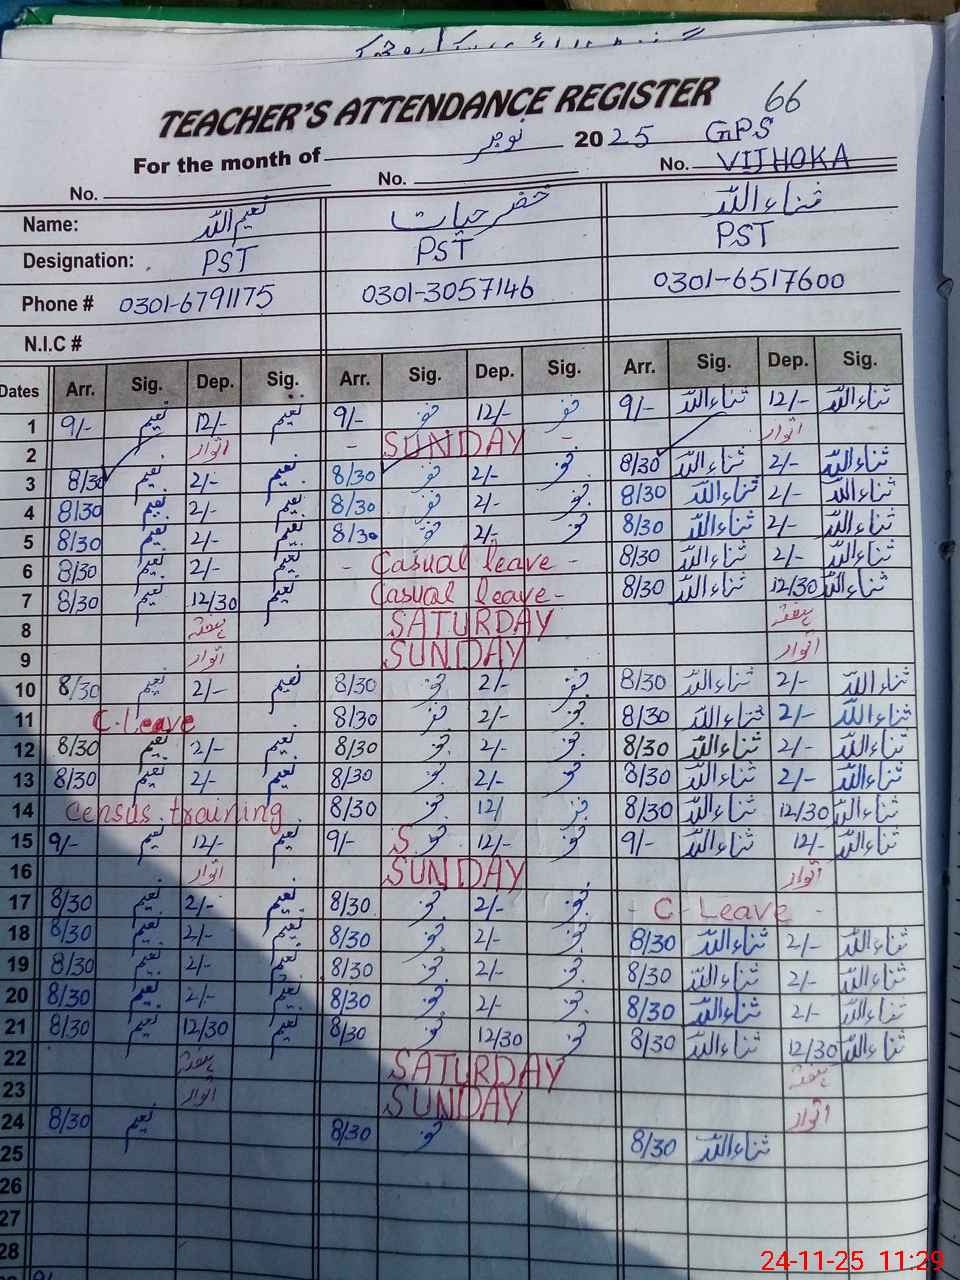 TEACHER'S ATTENDANCE REGISTER 66
For the month of نومبر 2025 GPS
No. No. No. VIJHOKA
Name: نعیم اللہ خضر حیات ثناءاللہ
Designation: PST PST PST
Phone # 0301-6791175 0301-3057146 0301-6517600
N.I.C #
Dates Arr. Sig. Dep. Sig. Arr. Sig. Dep. Sig. Arr. Sig. Dep. Sig.
1 9/- نعیم 12/- نعیم 9/- 12/- 9/- ثناءاللہ 12/- ثناءاللہ
2 اتوار - SUNDAY - اتوار
3 8/30 نعیم 2/- نعیم 8/30 2/- 8/30 ثناءاللہ 2/- ثناءاللہ
4 8/30 نعیم 2/- نعیم 8/30 2/- 8/30 ثناءاللہ 2/- ثناءاللہ
5 8/30 نعیم 2/- نعیم 8/30 2/- 8/30 ثناءاللہ 2/- ثناءاللہ
6 8/30 نعیم 2/- نعیم - Casual leave - 8/30 ثناءاللہ 2/- ثناءاللہ
7 8/30 نعیم 12/30 نعیم Casual leave - 8/30 ثناءاللہ 12/30 ثناءاللہ
8 ہفتہ SATURDAY ہفتہ
9 اتوار SUNDAY اتوار
10 8/30 نعیم 2/- نعیم 8/30 2/- 8/30 ثناءاللہ 2/- ثناءاللہ
11 C-Leave 8/30 2/- 8/30 ثناءاللہ 2/- ثناءاللہ
12 8/30 نعیم 2/- نعیم 8/30 2/- 8/30 ثناءاللہ 2/- ثناءاللہ
13 8/30 نعیم 2/- نعیم 8/30 2/- 8/30 ثناءاللہ 2/- ثناءاللہ
14 Census training 8/30 12/ 8/30 ثناءاللہ 12/30 ثناءاللہ
15 9/- نعیم 12/- نعیم 9/- S 12/- 9/- ثناءاللہ 12/- ثناءاللہ
16 اتوار SUNDAY اتوار
17 8/30 نعیم 2/- نعیم 8/30 2/- - C-Leave -
18 8/30 نعیم 2/- نعیم 8/30 2/- 8/30 ثناءاللہ 2/- ثناءاللہ
19 8/30 نعیم 2/- نعیم 8/30 2/- 8/30 ثناءاللہ 2/- ثناءاللہ
20 8/30 نعیم 2/- نعیم 8/30 2/- 8/30 ثناءاللہ 2/- ثناءاللہ
21 8/30 نعیم 12/30 نعیم 8/30 12/30 8/30 ثناءاللہ 12/30 ثناءاللہ
22 ہفتہ SATURDAY ہفتہ
23 اتوار SUNDAY اتوار
24 8/30 نعیم 8/30 8/30 ثناءاللہ
25
26
27
28
24-11-25 11:29